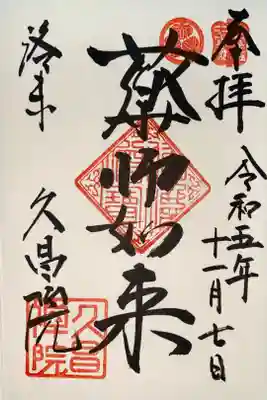 奉拝
令和五年
十一月七日
薬師如来
洛東
久昌院
久昌院